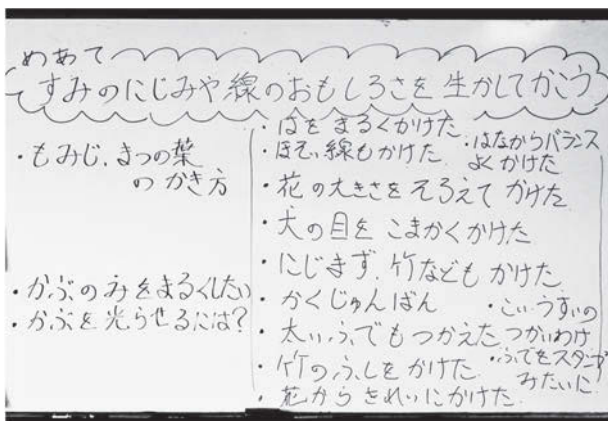 めあて
すみのにじみや線のおもしろさを生かしてかこう
・もみじ、まつの葉
のかき方
・かぶのみをまるくしたい
・かぶを光らせるには?
・はをまるくかけた
・ほそい線もかけた
・はなからバランス
よくかけた
・花の大きさをそろえてかけた
・犬の目をこまかくかけた
・にじまず、竹などもかけた
・かくじゅんばん
・こい・うすいの
つかいわけ
・太いふでもつかえた
・ふでをスタンプ
みたいに
・竹のふしをかけた
・花からきれいにかけた